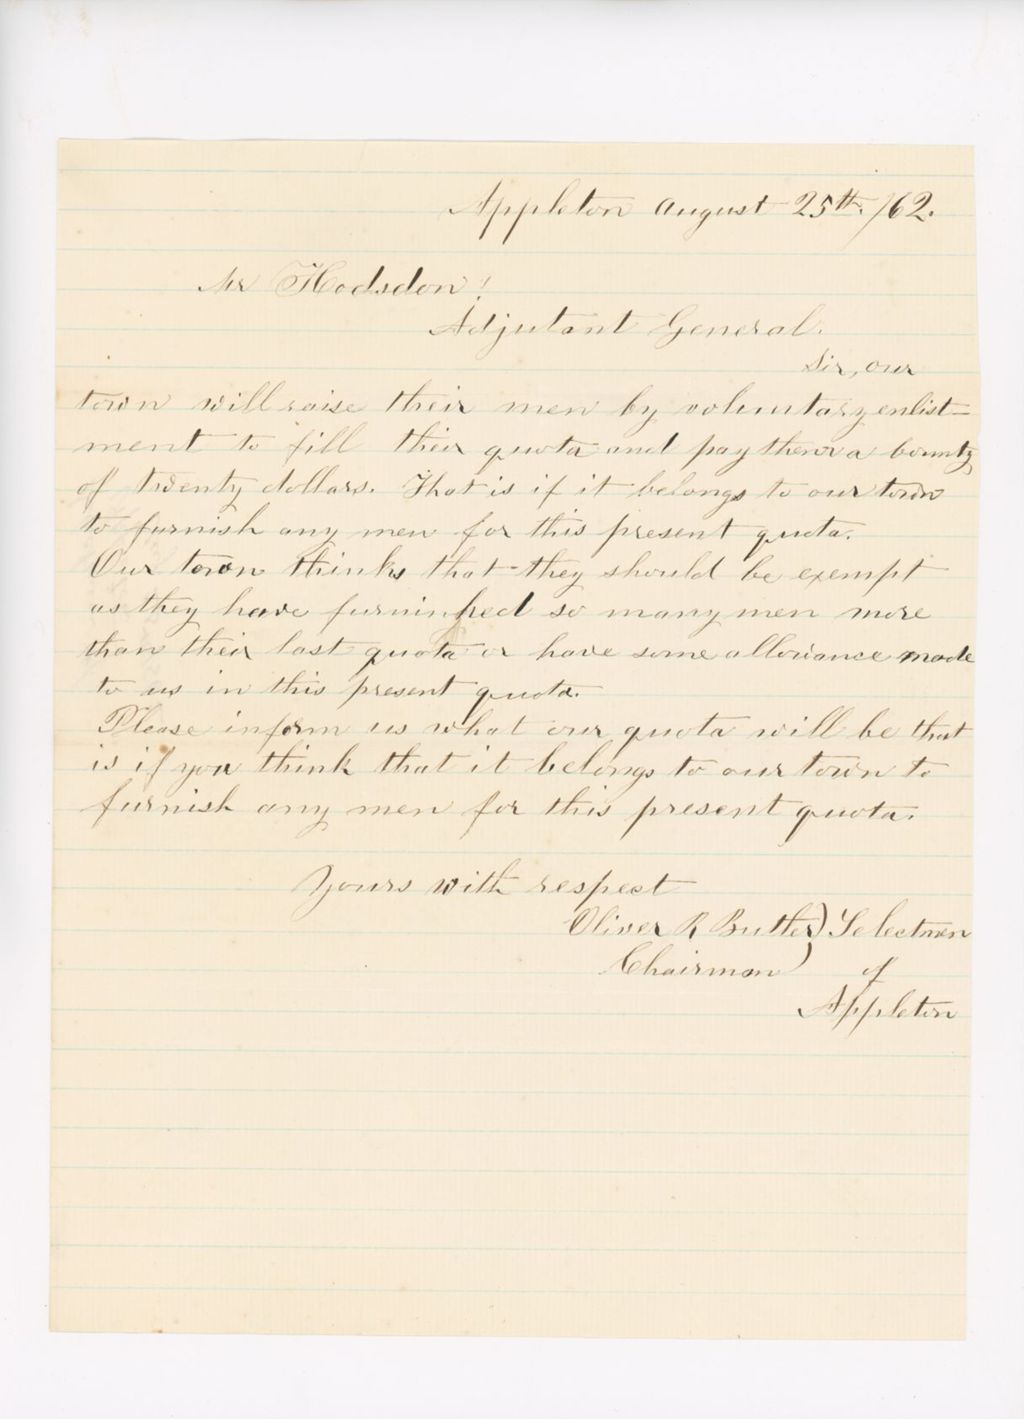 Appleton August 25th. /62.
Mr Hodsdon!
Adjutant General.
Sir, our
town will raise their men by voluntary enlist-
ment to fill their quota and pay them a bounty
of twenty dollars. That is if it belongs to our town
to furnish any men for this present quota.
Our town thinks that they should be exempt
as they have furninshed so many men more
than their last quota or have some allowance made
to us in this present quota.
Please inform us what our quota will be that
is if you think that it belongs to our town to
furnish any men for this present quota.
Yours with respect
Oliver R Butler) Selectmen
Chairman ) of
Appleton